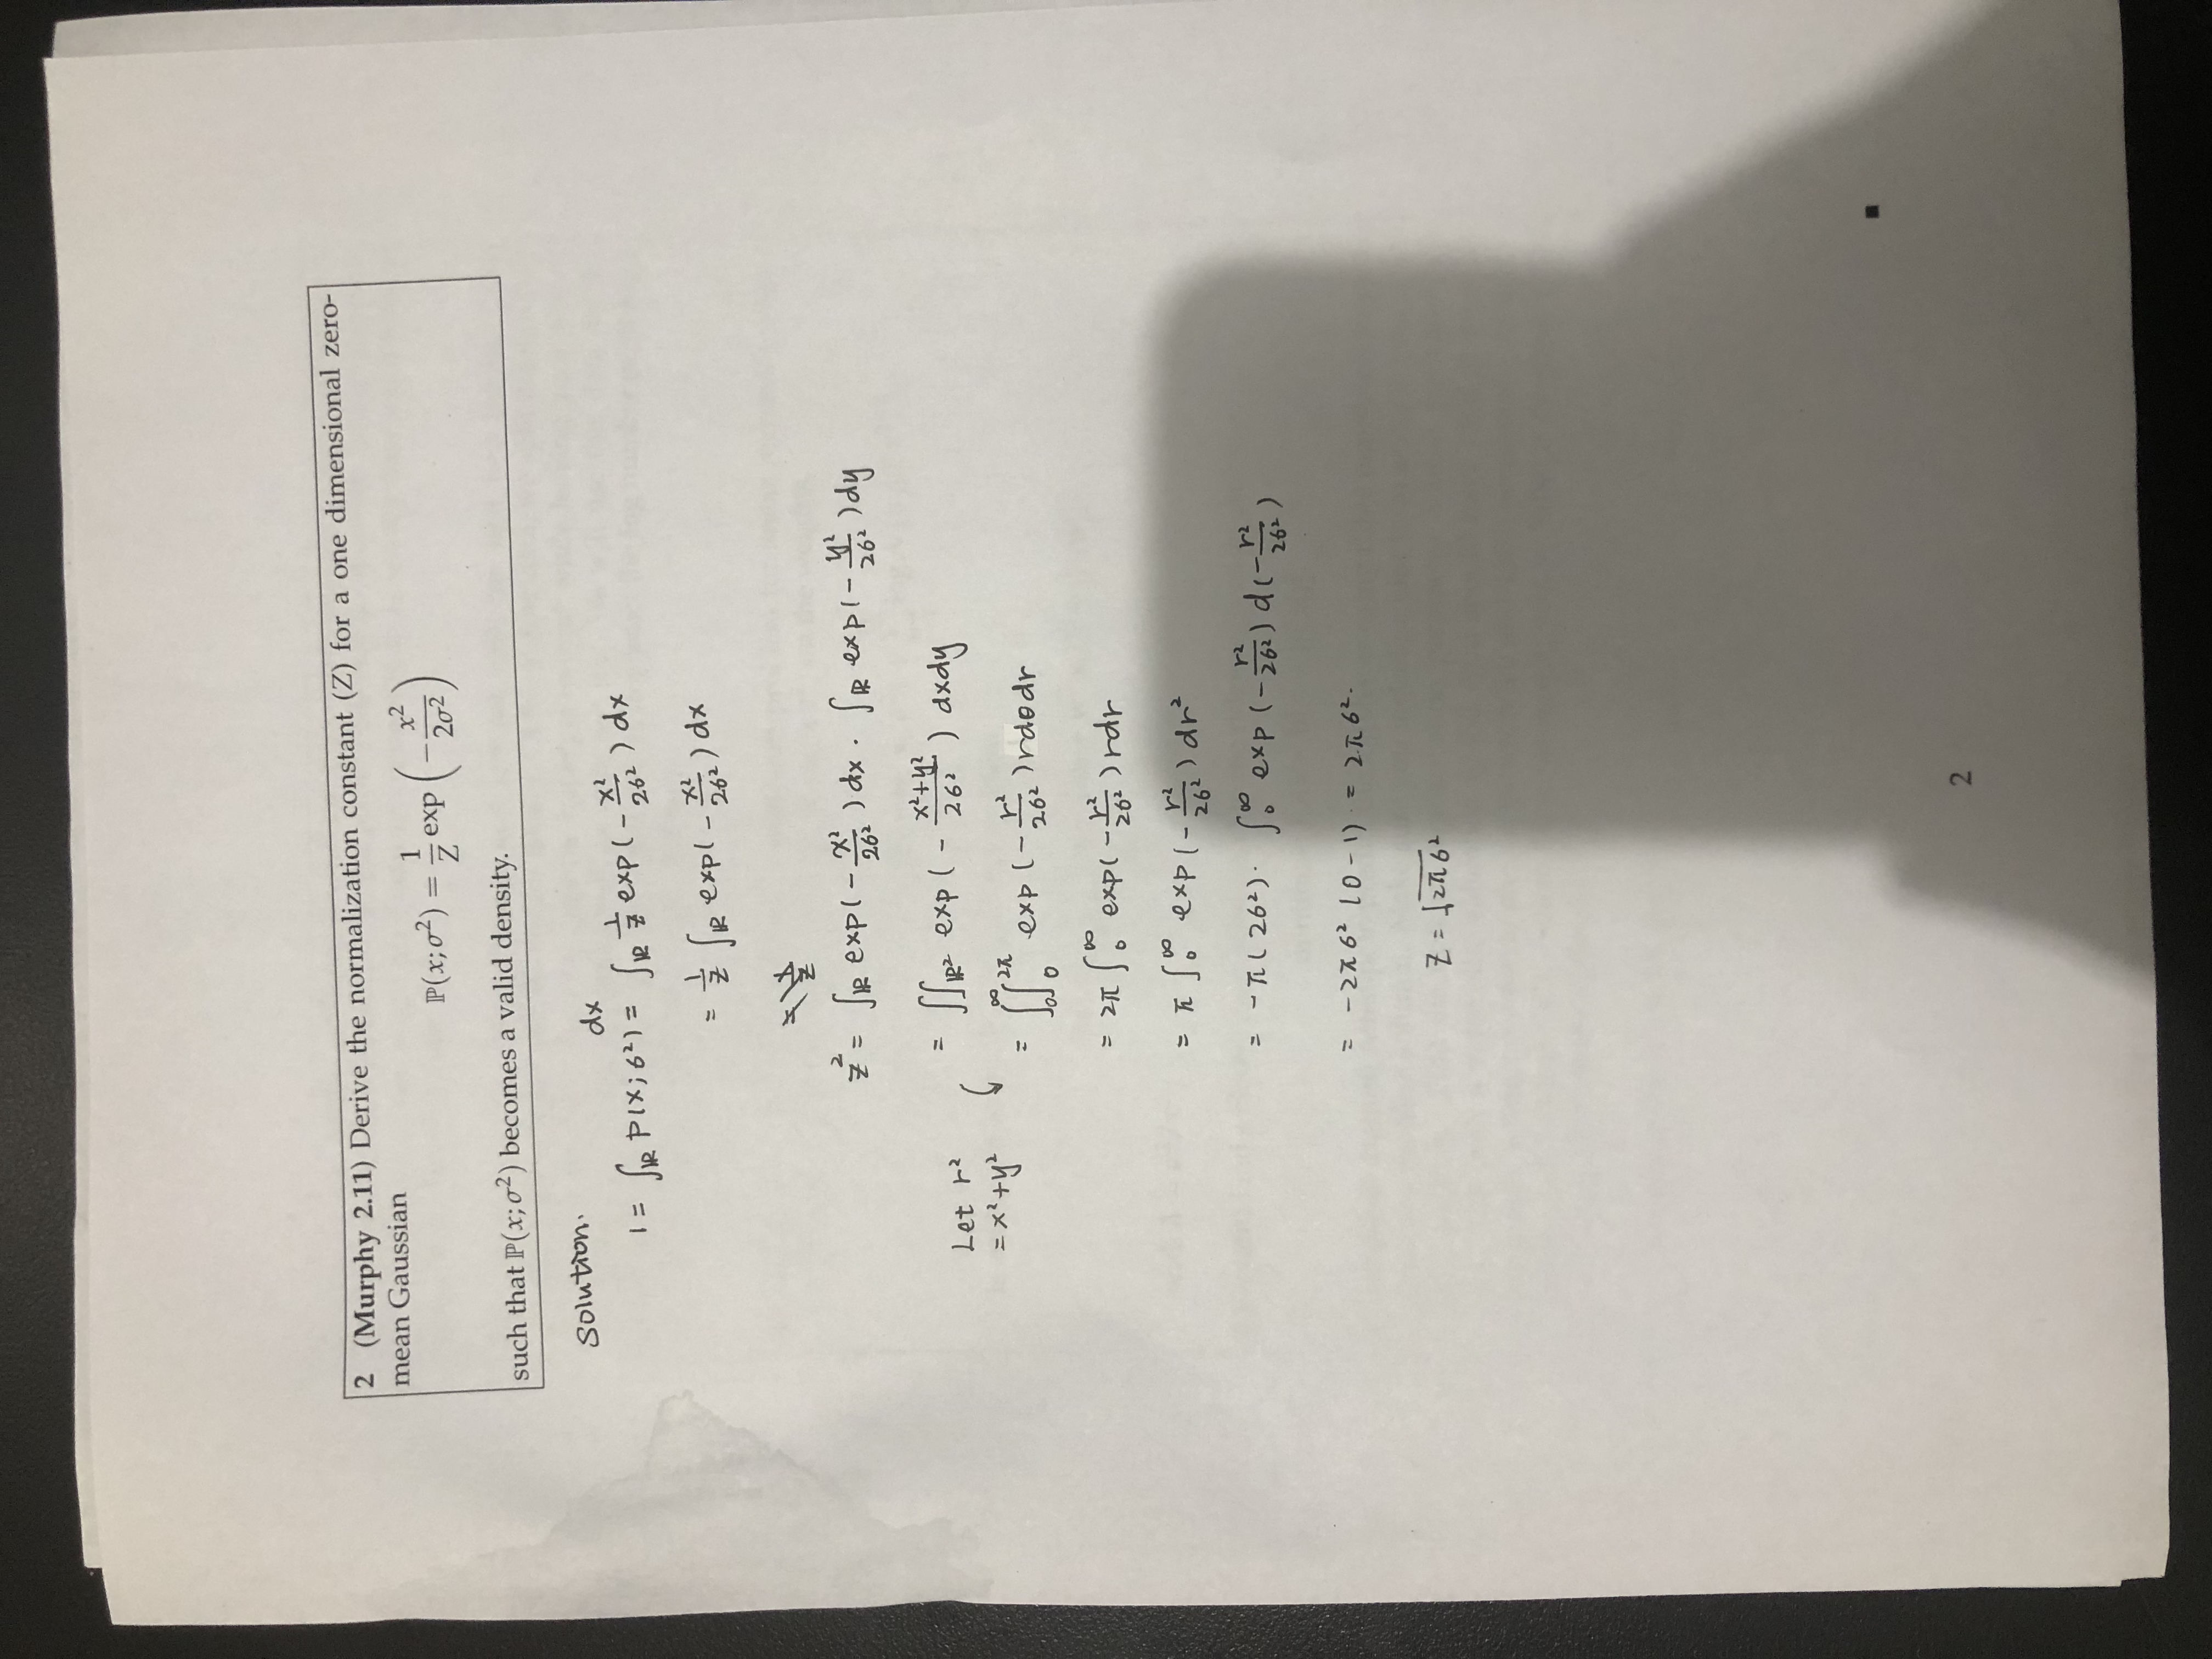 2 (Murphy 2.11) Derive the normalization constant (Z) for a one dimensional zero-
mean Gaussian
ℙ(x;σ²) = 1/Z exp(−x²/2σ²)
such that ℙ(x;σ²) becomes a valid density.
Solution.
1 = ∫ℝ P(x;σ²) dx = ∫ℝ 1/Z exp(−x²/2σ²) dx
= 1/Z ∫ℝ exp(−x²/2σ²) dx
Z² = ∫ℝ exp(−x²/2σ²) dx · ∫ℝ exp(−y²/2σ²) dy
= ∬ℝ² exp(−(x²+y²)/2σ²) dxdy
Let r²
= x²+y²
= ∫₀^∞ ∫₀^2π exp(−r²/2σ²) r dθ dr
= 2π ∫₀^∞ exp(−r²/2σ²) r dr
= π ∫₀^∞ exp(−r²/2σ²) dr²
= −π(2σ²) · ∫₀^∞ exp(−r²/2σ²) d(−r²/2σ²)
= −2πσ² (0−1) = 2πσ².
Z = √2πσ²
2